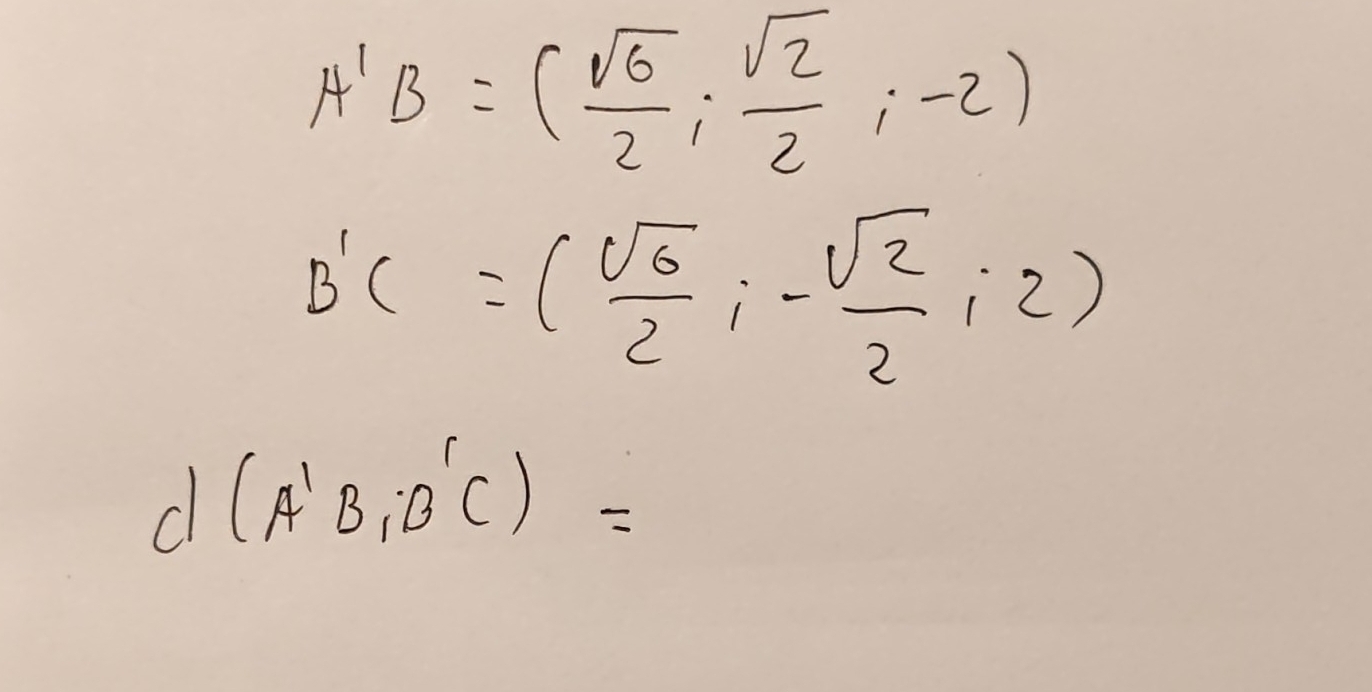 A'B = (√6/2 ; √2/2 ; -2)
B'C = (√6/2 ; -√2/2 ; 2)
d(A'B;B'C) =